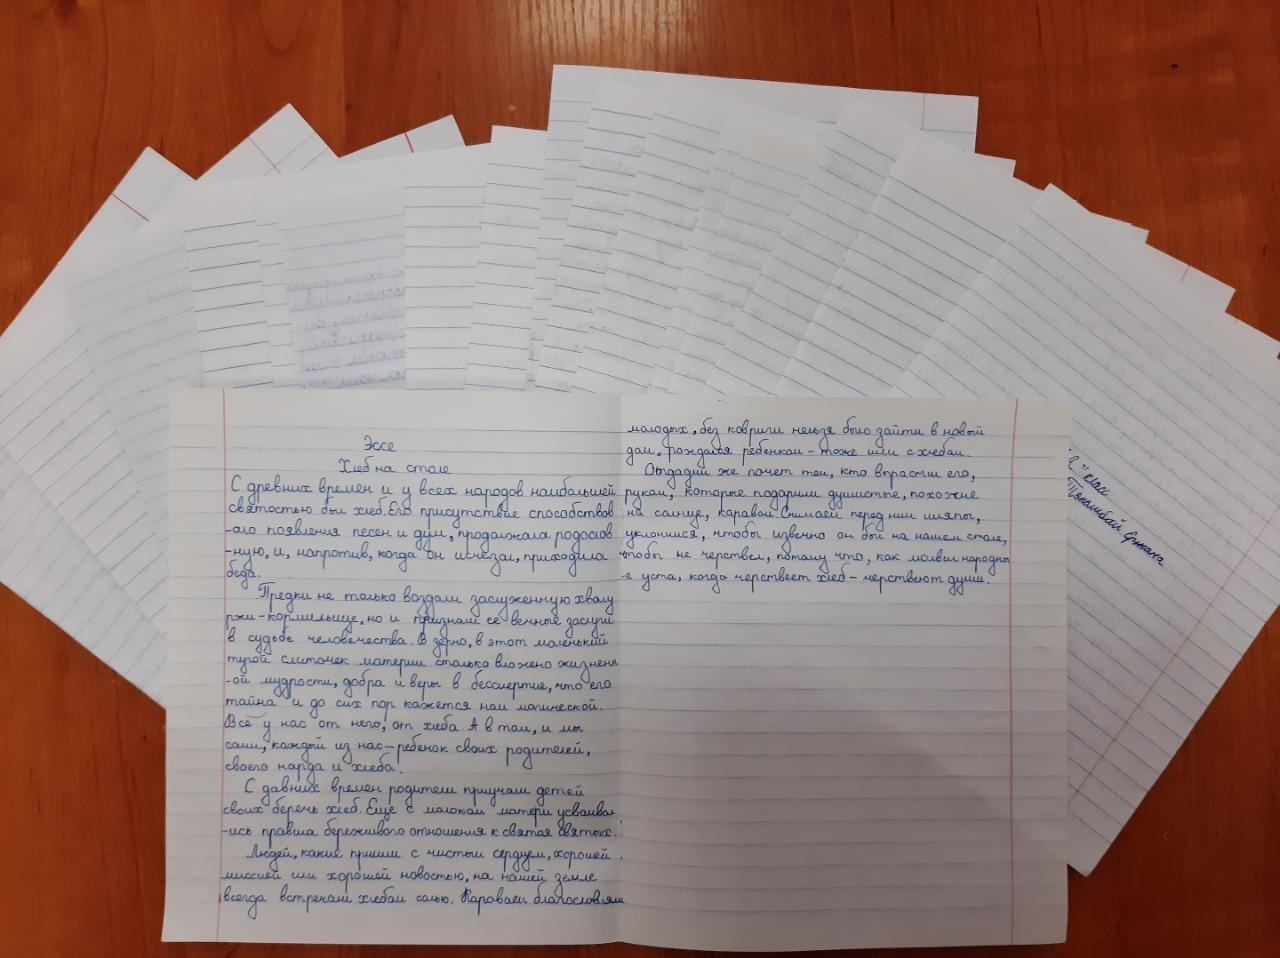 Эссе
Хлеб на столе
С древних времен и у всех народов наибольшей
святостью был хлеб. Его присутствие способствов
-ало появления песен и дум, продолжала родослов
-ную, и, напротив, когда он исчезал, приходила
беда.
Предки не только воздали заслуженную хвалу
ржи-кормилице, но и признали её вечные заслуги
в судьбе человечества. В зерно, в этот маленький
тугой слиточек материи столько вложено жизненн
-ой мудрости, добра и веры в бессмертие, что его
тайна и до сих пор кажется нам магической.
Всё у нас от него, от хлеба. А в том, и мы
сами, каждый из нас - ребенок своих родителей,
своего нарда и хлеба.
С давних времен родители приучали детей
своих беречь хлеб. Еще с молоком матери усваивал
-ись правила бережливого отношения к святая святых.
Людей, какие пришли с чистым сердцем, хорошей
миссией или хорошей новостью, на нашей земле
всегда встречали хлебом солью. Караваем благословляли
молодых, без ковриги нельзя было зайти в новый
дом, рождался ребенком - тоже шли с хлебом.
Отдадим же почет тем, кто вырастил его,
рукам, которые подарили душистые, похожие
на солнце, каравай. Снимаем перед ним шляпы,
уклонимся, чтобы извечно он был на нашем столе,
чтобы не черствел, потому что, как молвил народны
-е уста, когда черствеет хлеб - черствеют души.
класс